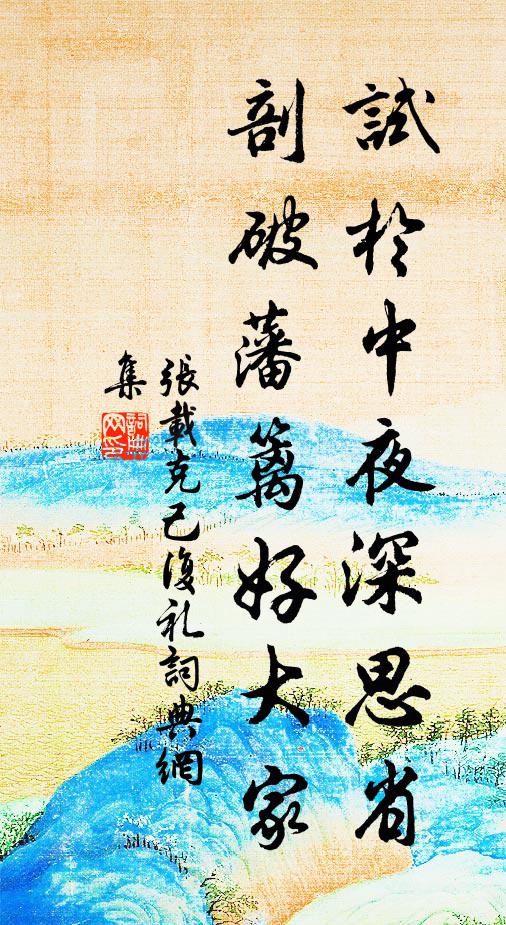 試於中夜深思省
剖破藩篱好大家
張載克己復礼詞典網
集
詞典网印